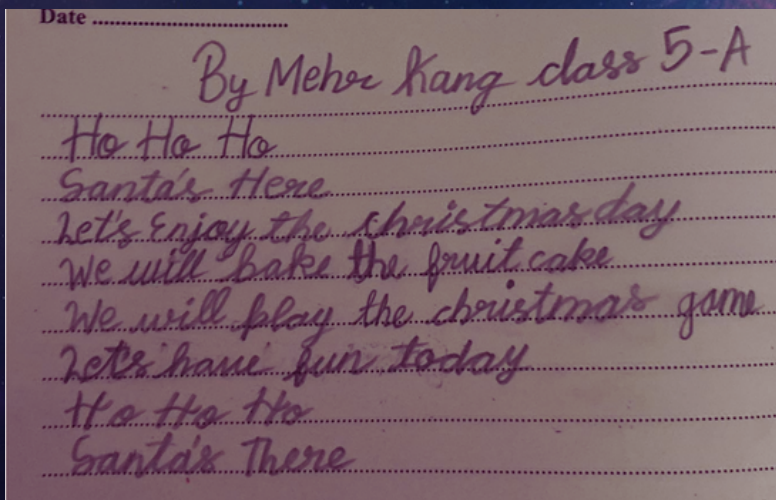 Date ................................
By Mehr Kang class 5-A
Ho Ho Ho
Santa's Here
Let's Enjoy the christmas day
We will bake the fruit cake
We will play the christmas game
Let's have fun today
Ho Ho Ho
Santa's There